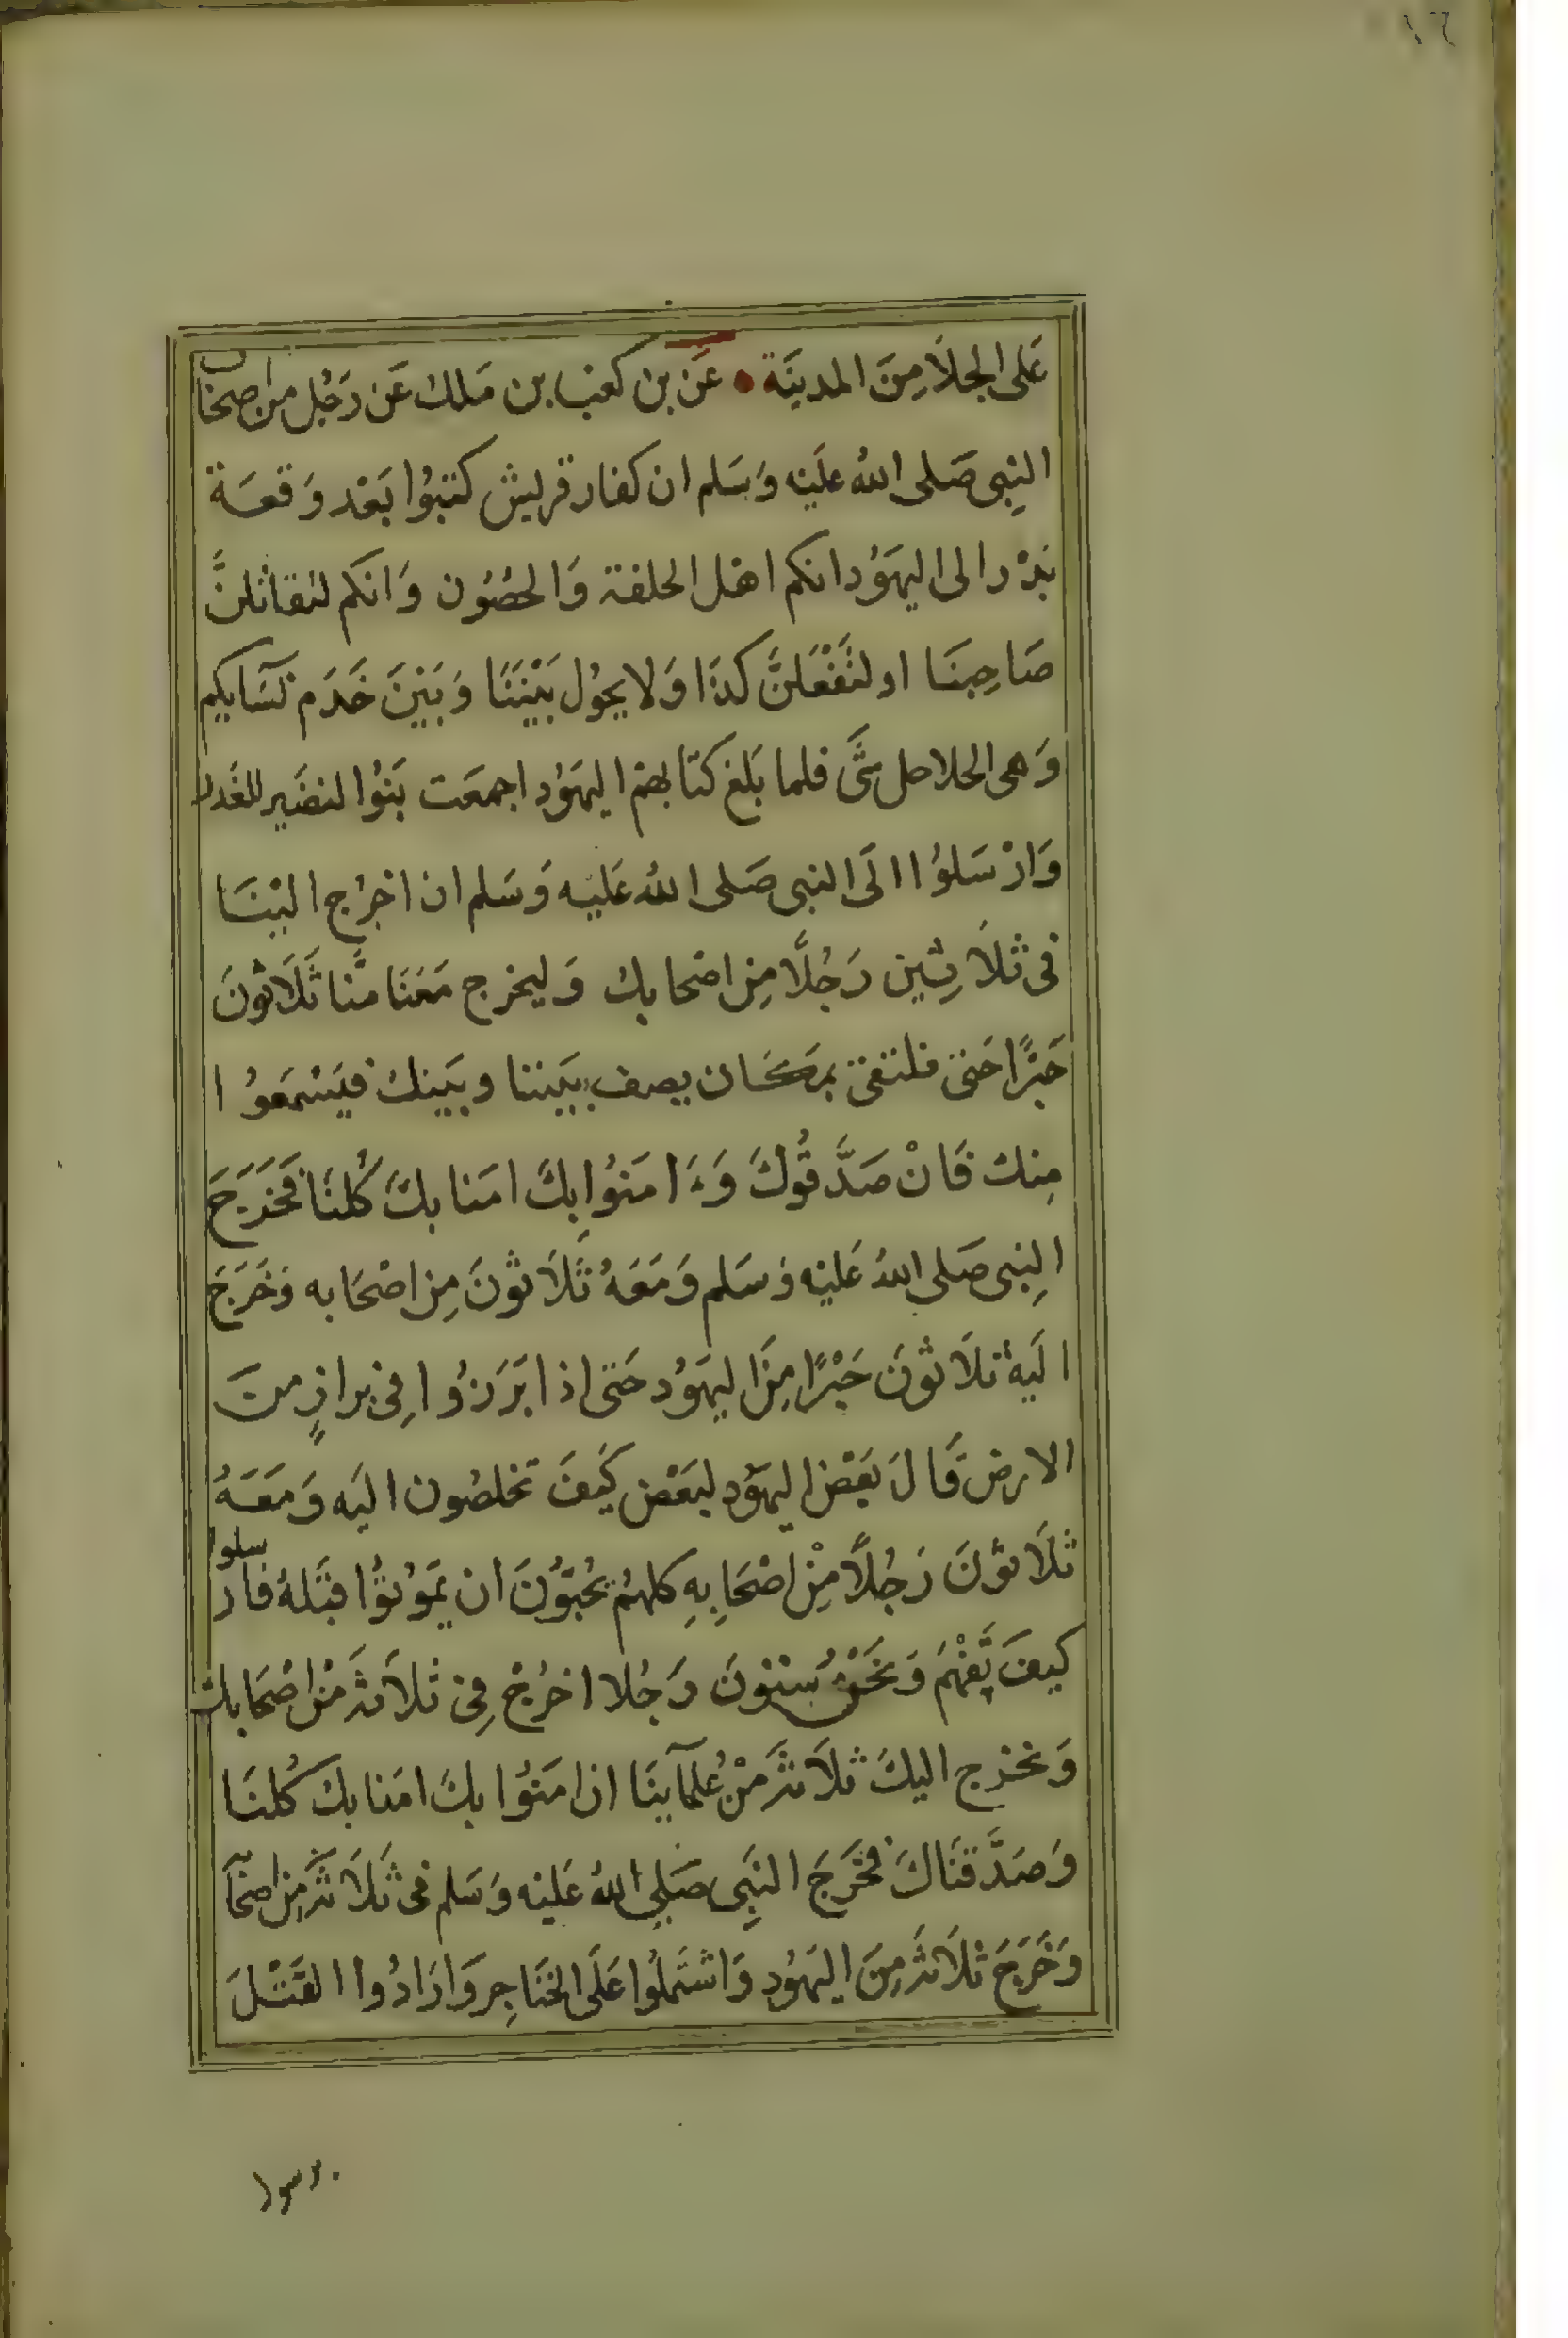 عَلى الجلَا مِنَ المدينَة • عَن بن كعب بن مَلك عَن رَجُل من اصحاب
النِبِى صَلى اللهُ علَيْه وَسَلم ان كفار قريش كتبُوا بَعْد وَقعَة
بَدْر الى اليهَوُد انكم اهْل الحلقة وَالحصُوُن وَانكم لتقاتلنَّ
صَاحِبنَا او لنَفْعَلنَّ كدَا وَلا يحوُل بَيْنَنَا وَبَيْنَ خَدَم نسَآيكم
وَهى الحلاحل شَّى فلما بَلغ كتابهمْ اليهَوُد اجمعَت بَنوُا لنضَير للغَدر
وَارْسَلوُا الَى النبى صَلى اللهُ عَليْه وَسَلم ان اخرُج اليْنَا
فى ثلَاثِين رَجُلًا مِن اصْحابك وَليخرج مَعَنَا منَّا ثَلَاثونَ
حَبْرًا حَتى فلتقى بمَكَان يصف بيَننا وبَينك فيَسْمَعوُا
مِنك فَانْ صَدَّقُوكَ وَءَامَنوُا بِكَ امَنا بكَ كُلنَا فَخَرَجَ
النِبى صَلى اللهُ عَليْه وَسَلم وَمَعَهُ ثَلَاثونَ مِن اصْحَابه وَخَرَجَ
اليَهْ ثلَاثونَ حَبْرًا مِنَ اليهَوُد حَتى اذا بَرَزوُا فِى برازٍ منَ
الارض قَالَ بَعْض اليهَوُد لبَعْض كَيفَ تخلصُون اليَه وَمَعَهُ
ثلَاثوْنَ رَجُلًا مِنْ اصْحَابِهِ كلهُمْ يُحُبّوُنَ ان يمَوُتوُا قبْلهُ فارسلوا
كيفَ نَفْهَمُ وَنَحْنُ ستوُنَ رَجُلا اخرُجْ فِى ثلَاثةٍ منْ اصْحَابك
وَنخرج اليكَ ثلَاثةٍ منْ عُلمآينَا ان امَنوُا بكَ امَنا بك كُلنَا
وَصَدَّقنَاكَ فَخَرَجَ النَبِى صَلى اللهُ عَليْه وَسَلم فى ثَلَاثةٍ مِن اصحَابه
وَخَرَجَ ثلَاثةٍ مِنَ اليهَوُد وَاشتَملُوا عَلَى الخنَاجِر وَارَادُوا القَتْلَ